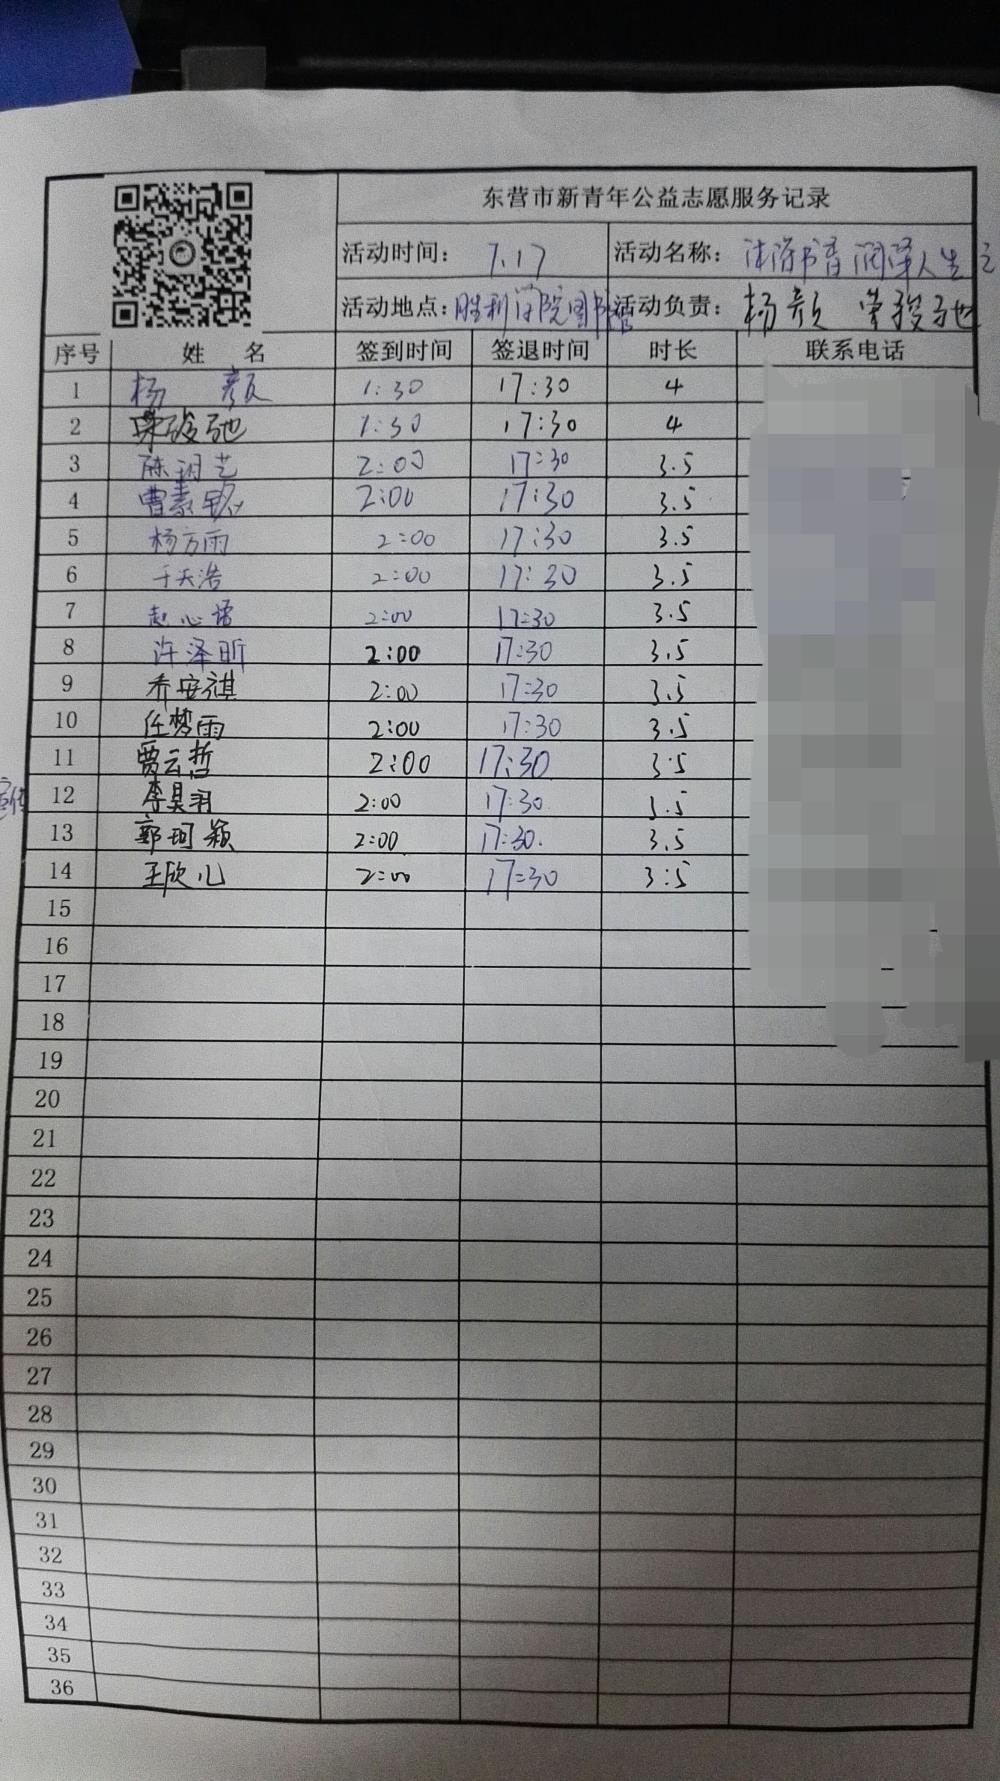 东营市新青年公益志愿服务记录
活动时间： 7.17 活动名称： 沐浴书香 润泽人生
活动地点：胜利学院图书馆 活动负责： 杨颜 荣骏驰
序号 姓 名 签到时间 签退时间 时长 联系电话
1 杨 颜 1:30 17:30 4
2 荣骏驰 1:30 17:30 4
3 陈玥艺 2:00 17:30 3.5
4 曹素 2:00 17:30 3.5
5 杨方雨 2:00 17:30 3.5
6 于天浩 2:00 17:30 3.5
7 赵心语 2:00 17:30 3.5
8 许泽昕 2:00 17:30 3.5
9 乔安祺 2:00 17:30 3.5
10 任梦雨 2:00 17:30 3.5
11 贾云哲 2:00 17:30 3.5
12 李昊羽 2:00 17:30 3.5
13 郭珂颖 2:00 17:30. 3.5
14 王欣儿 2:00 17:30 3:5
15
16
17
18
19
20
21
22
23
24
25
26
27
28
29
30
31
32
33
34
35
36